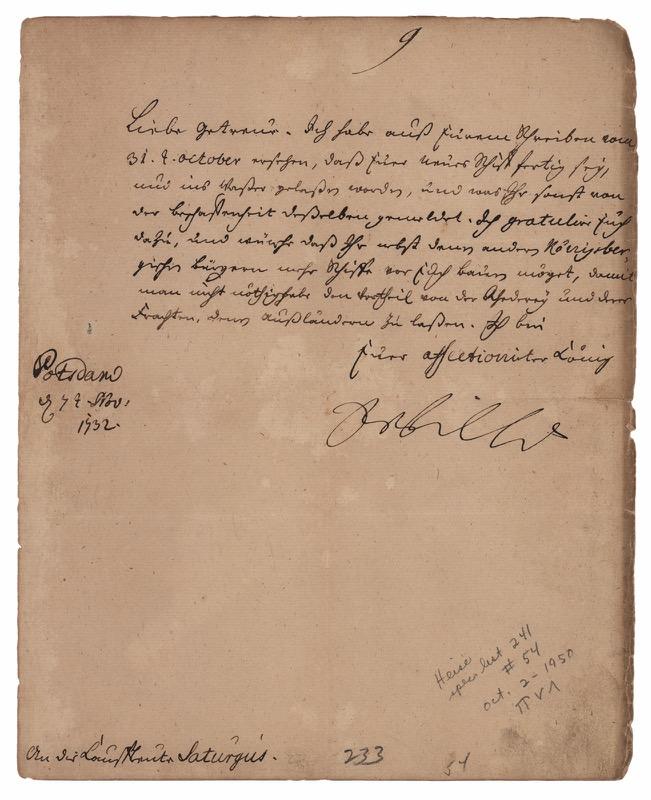 9
Liebe Getreue. Ich habe auß Eurem Schreiben vom
31. t. october ersehen, daß Euer neues Schiff fertig sey,
und ins Waßer gelaßen worden, und was Ihr sonst von
der beschaffenheit deßelben gemeldet. Ich gratulire Euch
dazu, und wünsche daß Ihr nebst denen andern Königsber-
gischen bürgern mehr Schiffe vor Euch bauen möget, damit
man nicht nöthig habe den Vortheil von der Rhederey und deren
Frachten, denen Außländern zu laßen. Ich bin
Euer affectionirter König
Potsdam
d 7 t. Nov:
1732.
An die Kauffleute Saturgus.
Heise
spec list 241
# 54
Oct. 2 - 1950
233
54